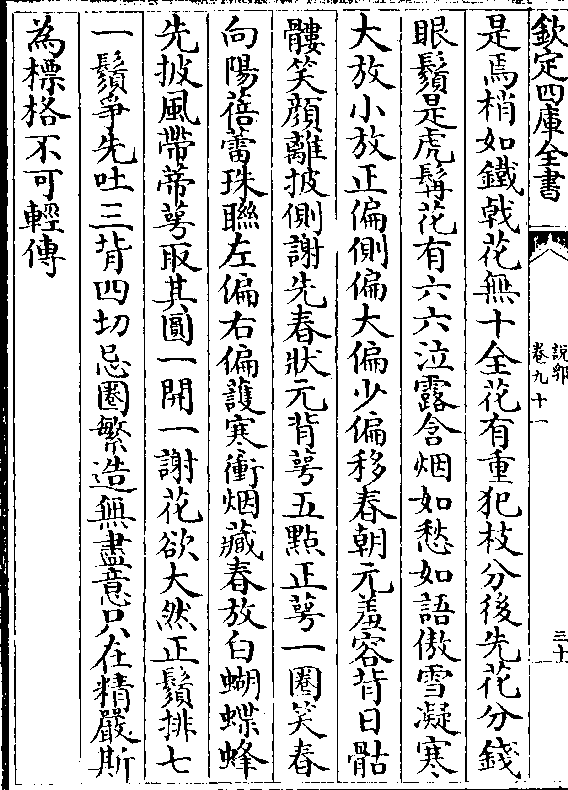 欽定四庫全書
說郛
卷九十一
三十
是焉梢如鐵戟花無十全花有重犯枝分後先花分錢
眼鬚是虎髯花有六六泣露含烟如愁如語傲雪凝寒
大放小放正偏側偏大偏少偏移春朝元羞容背日骷
髏笑顔離披側謝先春狀元背萼五點正萼一圈笑春
向陽蓓蕾珠聮左偏右偏護寒衝烟藏春放白蝴蝶蜂
先披風帶蒂萼取其圓一開一謝花欲大然正鬚排七
一鬚爭先吐三背四切忌圈繁造無盡意只在精嚴斯
為標格不可輕傳